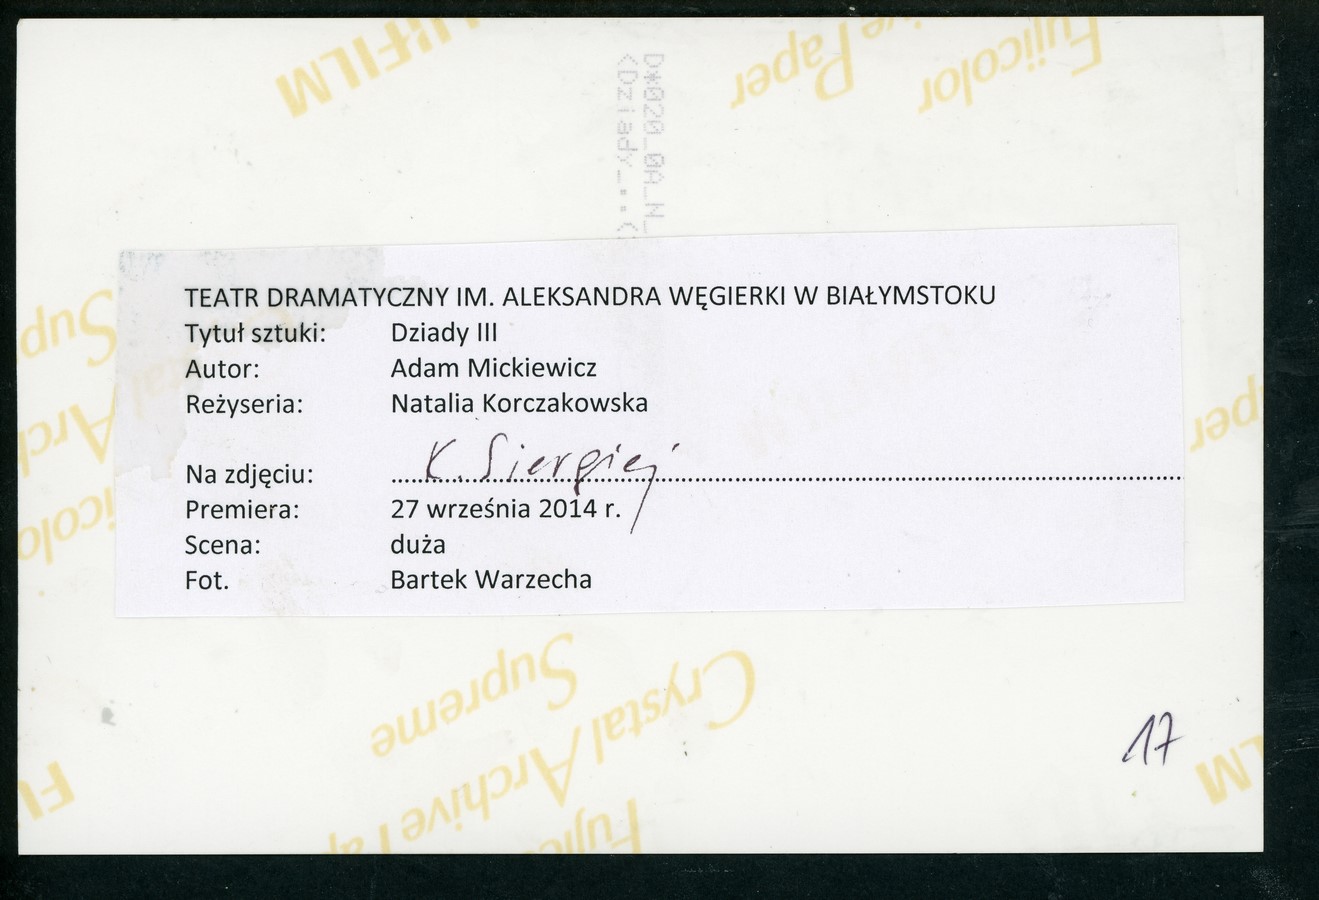 FUJIFILM
Paper
Fujicolor
D*020_0A_N_
<Dziady_..(
TEATR DRAMATYCZNY IM. ALEKSANDRA WĘGIERKI W BIAŁYMSTOKU
Tytuł sztuki: Dziady III
Autor: Adam Mickiewicz
Reżyseria: Natalia Korczakowska
Na zdjęciu: K. Siergiej
Premiera: 27 września 2014 r.
Scena: duża
Fot. Bartek Warzecha
Supreme
Crystal Archive
17